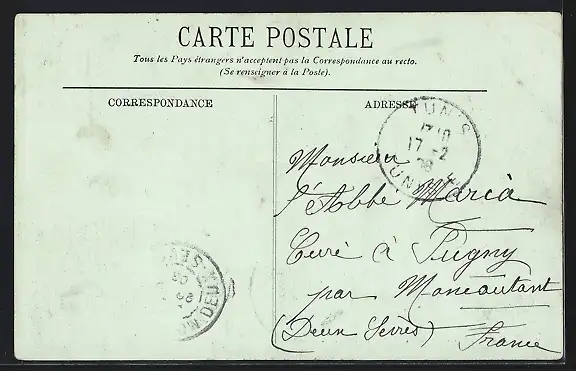 CARTE POSTALE
Tous les Pays étrangers n'acceptent pas la Correspondance au recto.
(Se renseigner à la Poste).
CORRESPONDANCE
ADRESSE
TUNIS
17-2
Monsieur
l'Abbé Maria
Curé à Pugny
par Moncoutant
(Deux Sèvres)
France
DEUX-SÈV